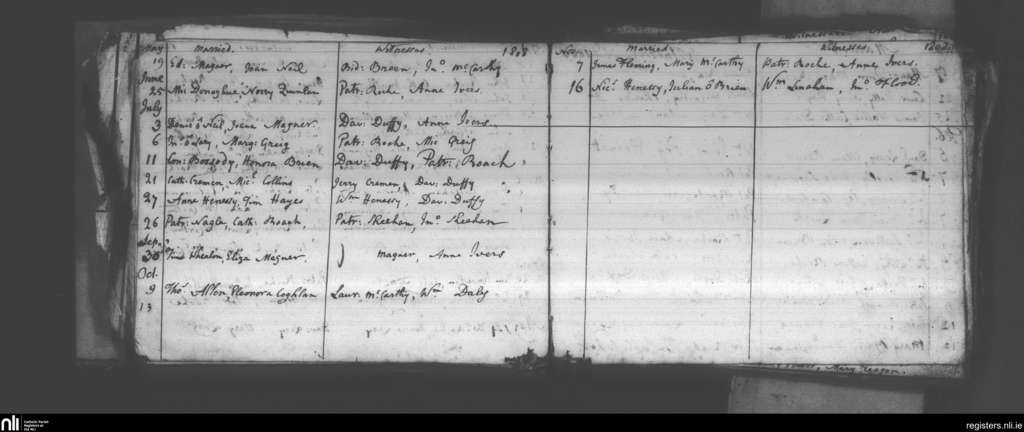 May Married. Witnesses 1808
19 Ed: Magner, Joan Neil Bid: Breen, Jno. McCarthy
June
25 Mic: Donoghue, Norry Quinlan Patr: Roche, Anne Ivers
July
3 Denis O Neil, Joanna Magner Dav: Duffy, Anne Ivers
6 Jno. Margt: Greig Patr: Roche, Mic Greig
11 Con: Honora Brien Dav: Duffy, Patr: Roach
21 Cath: Cremen, Micl. Collins Jerry Cremen, Dav: Duffy
27 Anne Henessy, Tim Hayes Wm Henessy, Dav: Duffy
26 Patr: Nagle, Cath: Roach, Patr: Sheehan, Jno. Sheehan
Sep.
30 Thos Whealon, Eliza Magner, Magner, Anne Ivers
Oct.
9 Thos Allen, Eleonora Coghlan Laur. McCarthy, Wm Daly
13
Nov. Married Witnesses 1808
7 James Fleming, Mary McCarthy Patr: Roche, Anne Ivers.
16 Nic: Henessy, Julian O Brien Wm Linahan, Jno.
Mary Reagan.
nli
Catholic Parish
Registers at
the NLI
registers.nli.ie